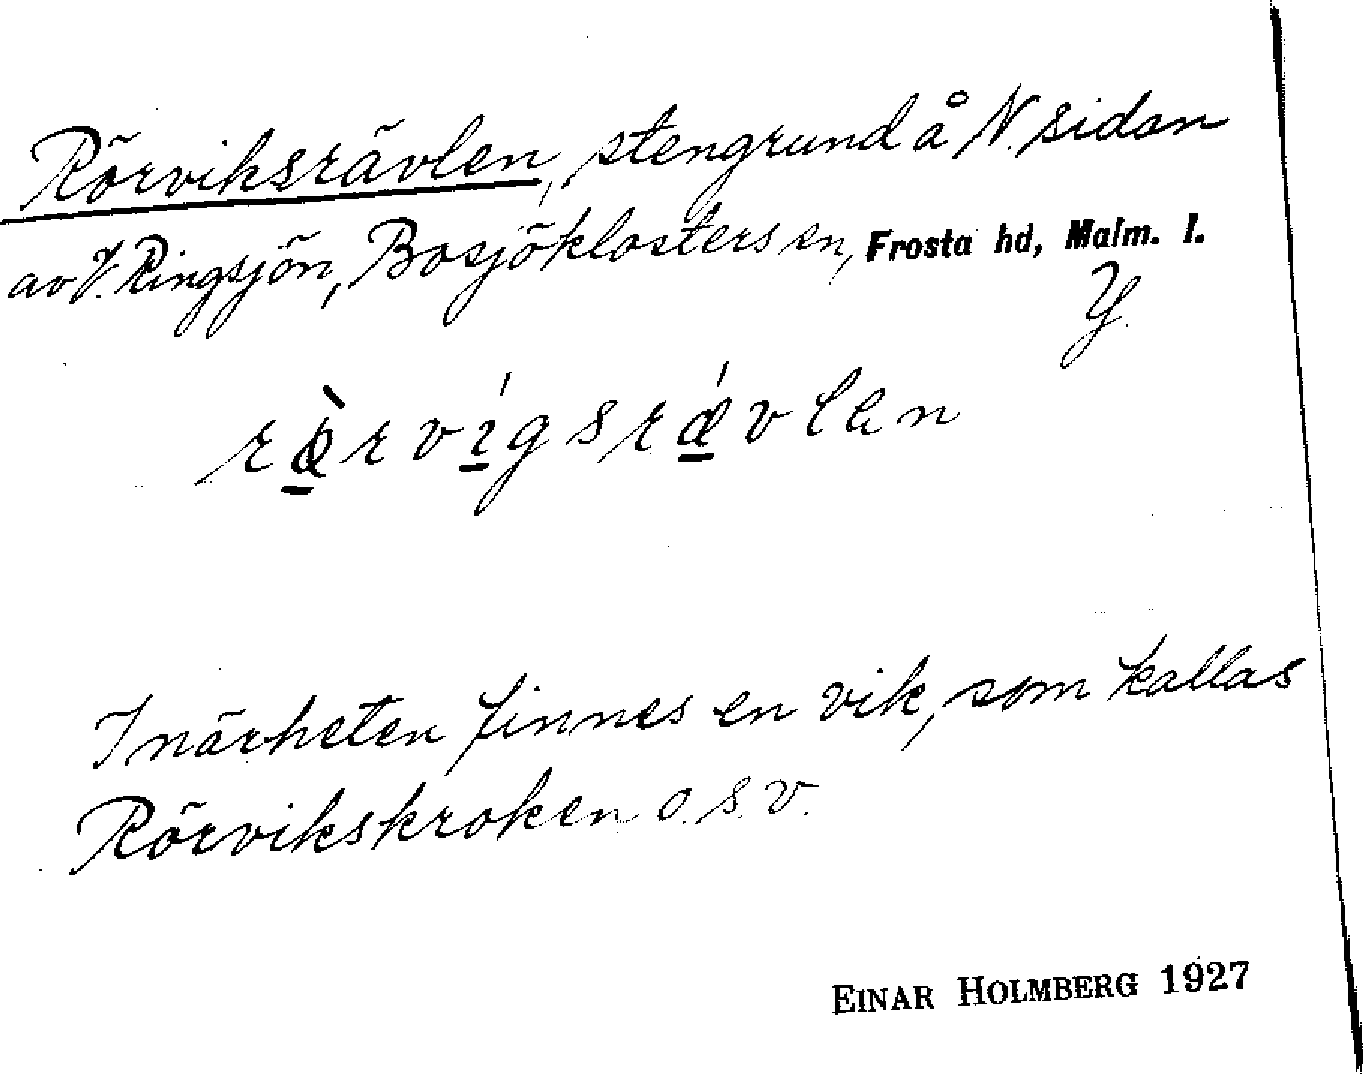 Rörviksrävlen, stengrund å N. sidan
av V. Ringsjön, Bosjöklosters sn, Frosta hd, Malm. l.
Y.
rö̀rvígsrǽvlen
I närheten finnes en vik, som kallas
Rörvikskroken o.s.v.
EINAR HOLMBERG 1927